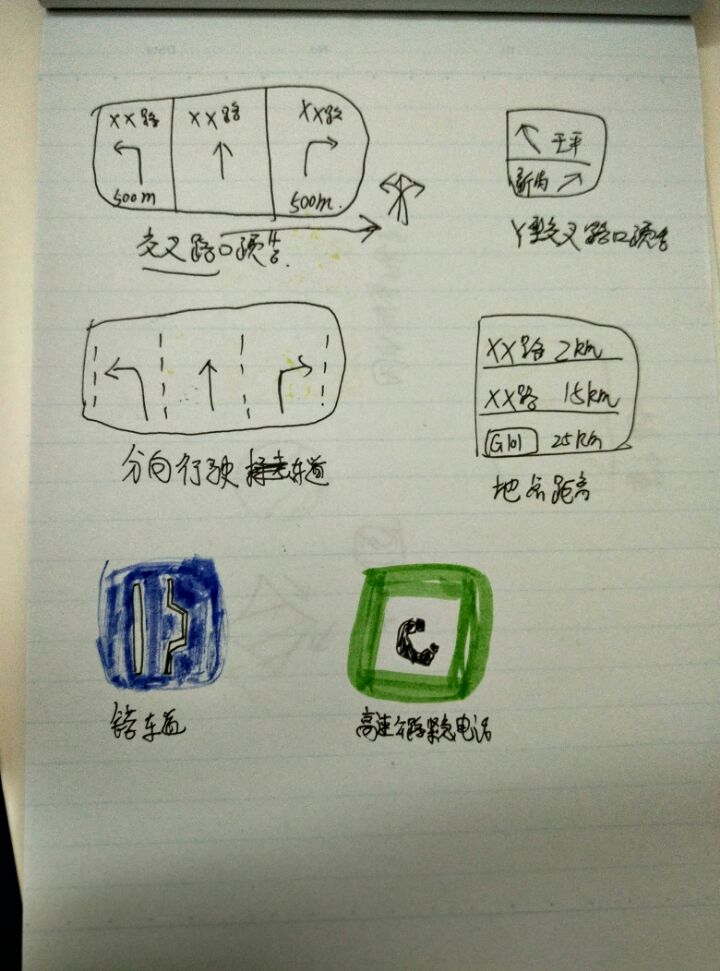 XX路 XX路 XX路
500m 500m
交叉路口预告
于平
新内
Y型交叉路口预告
XX路 2km
XX路 15km
G101 25km
分向行驶车道
地名距离
错车道
高速公路紧急电话